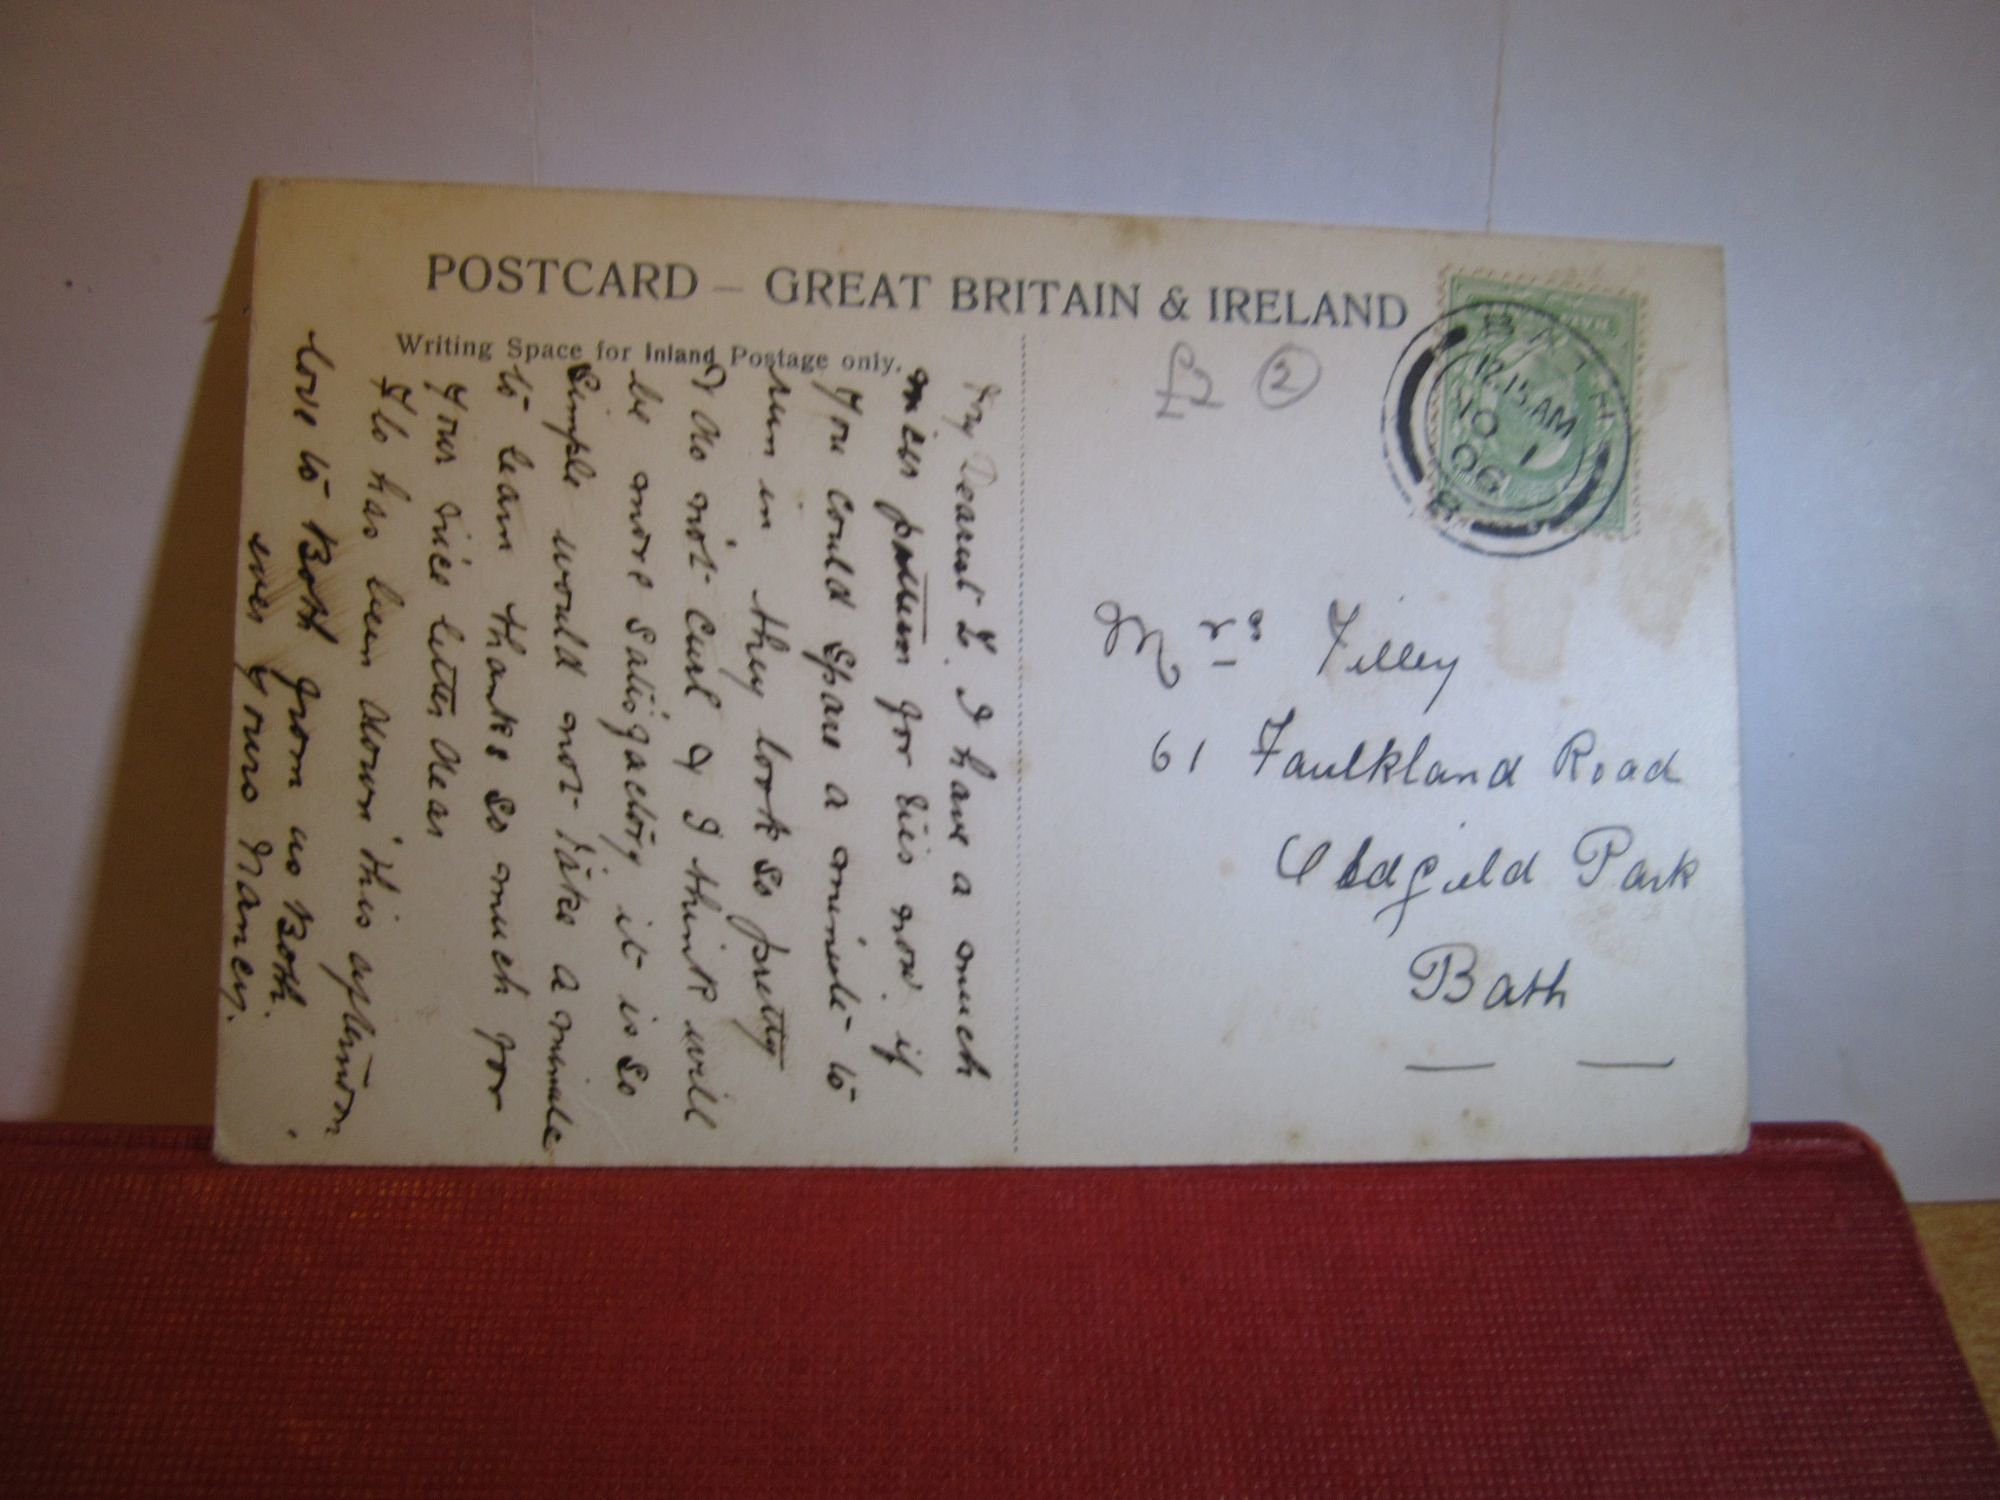 POSTCARD – GREAT BRITAIN & IRELAND
Writing Space for Inland Postage only.
My Dearest L. I have a much
nicer pattern for ties now. if
you could spare a minute to
run in they look so pretty
& do not curl & I think will
be more satisfactory it is so
simple would not take a minute
to learn thanks so much for
your nice letter dear
Flo has been down this afternoon
love to Both from us Both.
ever yours Nancy.
£2 2
BATH
12.15 AM
JO 1
06
Mrs Tilley
61 Faulkland Road
Oldfield Park
Bath